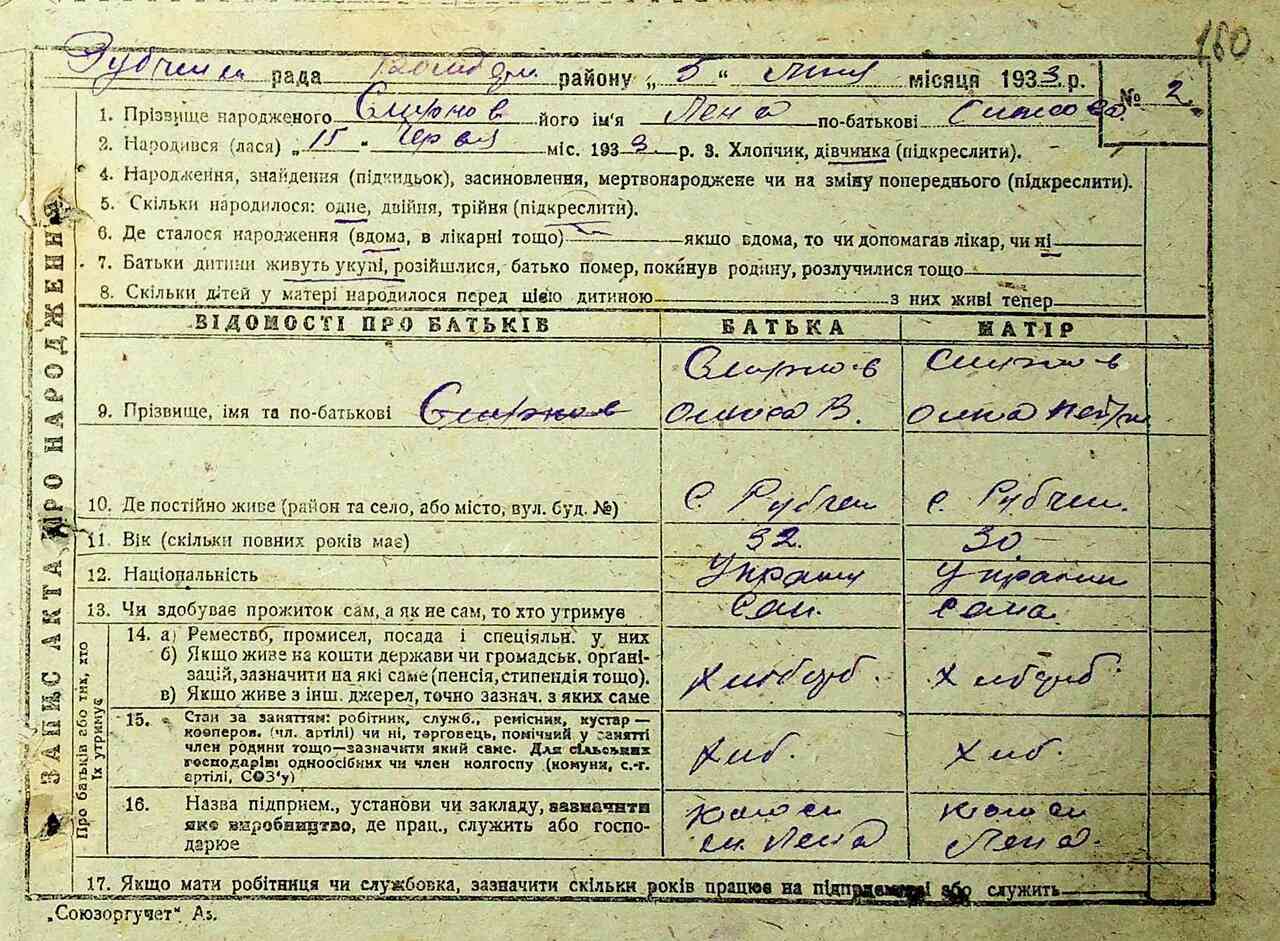 160
рада району „ 5 “ місяця 1933 р.
№ 2
1. Прізвище народженого Смирнов його ім'я Лена по-батькові
2. Народився (лася) „ 15 “ Червня міс. 1933 р. 3. Хлопчик, дівчинка (підкреслити).
4. Народження, знайдення (підкидьок), засиновлення, мертвонароджене чи на зміну попереднього (підкреслити).
5. Скільки народилося: одне, двійня, трійня (підкреслити).
6. Де сталося народження (вдома, в лікарні тощо) якщо вдома, то чи допомагав лікар, чи ні
7. Батьки дитини живуть укупі, розійшлися, батько помер, покинув родину, розлучилися тощо
8. Скільки дітей у матері народилося перед цією дитиною з них живі тепер
ЗАПИС АКТА ПРО НАРОДЖЕННЯ
ВІДОМОСТІ ПРО БАТЬКІВ БАТЬКА МАТІР
Смирнов Смирнов
9. Прізвище, імя та по-батькові Смирнов В.
10. Де постійно живе (район та село, або місто, вул. буд. №) с. с.
11. Вік (скільки повних років має) 32. 30
12. Національність
13. Чи здобуває прожиток сам, а як не сам, то хто утримує Сам. сама
Про батьків або тих, хто їх утримує
14. а) Ремество, промисел, посада і спеціяльн. у них
б) Якщо живе на кошти держави чи громадськ. органі-
зацій, зазначити на які саме (пенсія, стипендія тощо).
в) Якщо живе з інш. джерел, точно зазнач. з яких саме
15. Стан за заняттям: робітник, служб., ремісник, кустар —
кооперов. (чл. артілі) чи ні, торговець, помічний у занятті
член родини тощо—зазначити який саме. Для сільських
господарів: одноосібних чи член колгоспу (комуни, с.-г.
артілі, СОЗ'у)
16. Назва підприєм., установи чи закладу, зазначити
яке виробництво, де прац., служить або госпо-
дарює
17. Якщо мати робітниця чи службовка, зазначити скільки років працює на підприємстві або служить
„Союзоргучет“ Аз.